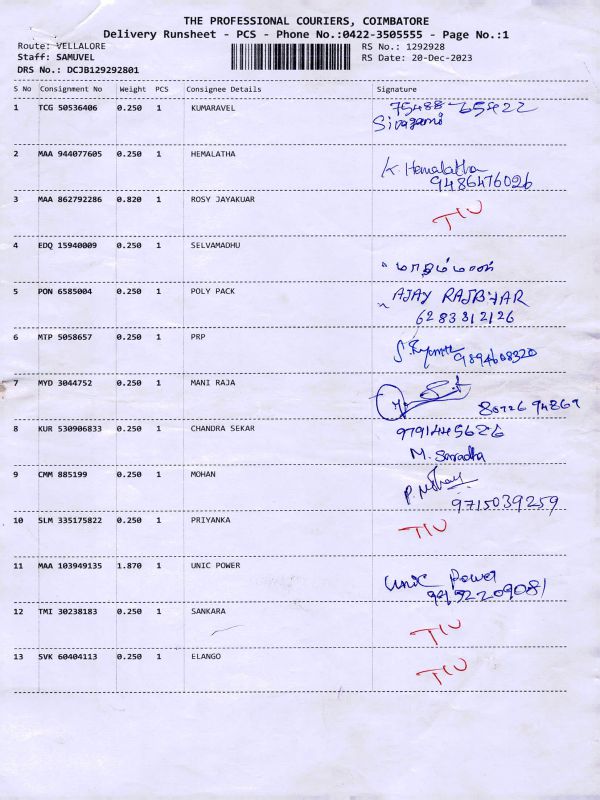 THE PROFESSIONAL COURIERS, COIMBATORE
Delivery Runsheet - PCS - Phone No.:0422-3505555 - Page No.:1
Route: VELLALORE RS No.: 1292928
Staff: SAMUVEL RS Date: 20-Dec-2023
DRS No.: DCJB129292801
S No Consignment No Weight PCS Consignee Details Signature
1 TCG 50536406 0.250 1 KUMARAVEL 75488-65422
Sivagami
2 MAA 944077605 0.250 1 HEMALATHA K. Hemalatha
9486476026
3 MAA 862792286 0.820 1 ROSY JAYAKUAR TIU
4 EDQ 15940009 0.250 1 SELVAMADHU
5 PON 6585004 0.250 1 POLY PACK AJAY RAJBHAR
6283812126
6 MTP 5058657 0.250 1 PRP 9894608320
7 MYD 3044752 0.250 1 MANI RAJA
8 KUR 530906833 0.250 1 CHANDRA SEKAR 9791445626
M. Saradha
9 CMM 885199 0.250 1 MOHAN
9715039259
10 SLM 335175822 0.250 1 PRIYANKA TIU
11 MAA 103949135 1.870 1 UNIC POWER Unic Power
12 TMI 30238183 0.250 1 SANKARA TIU
13 SVK 60404113 0.250 1 ELANGO TIU